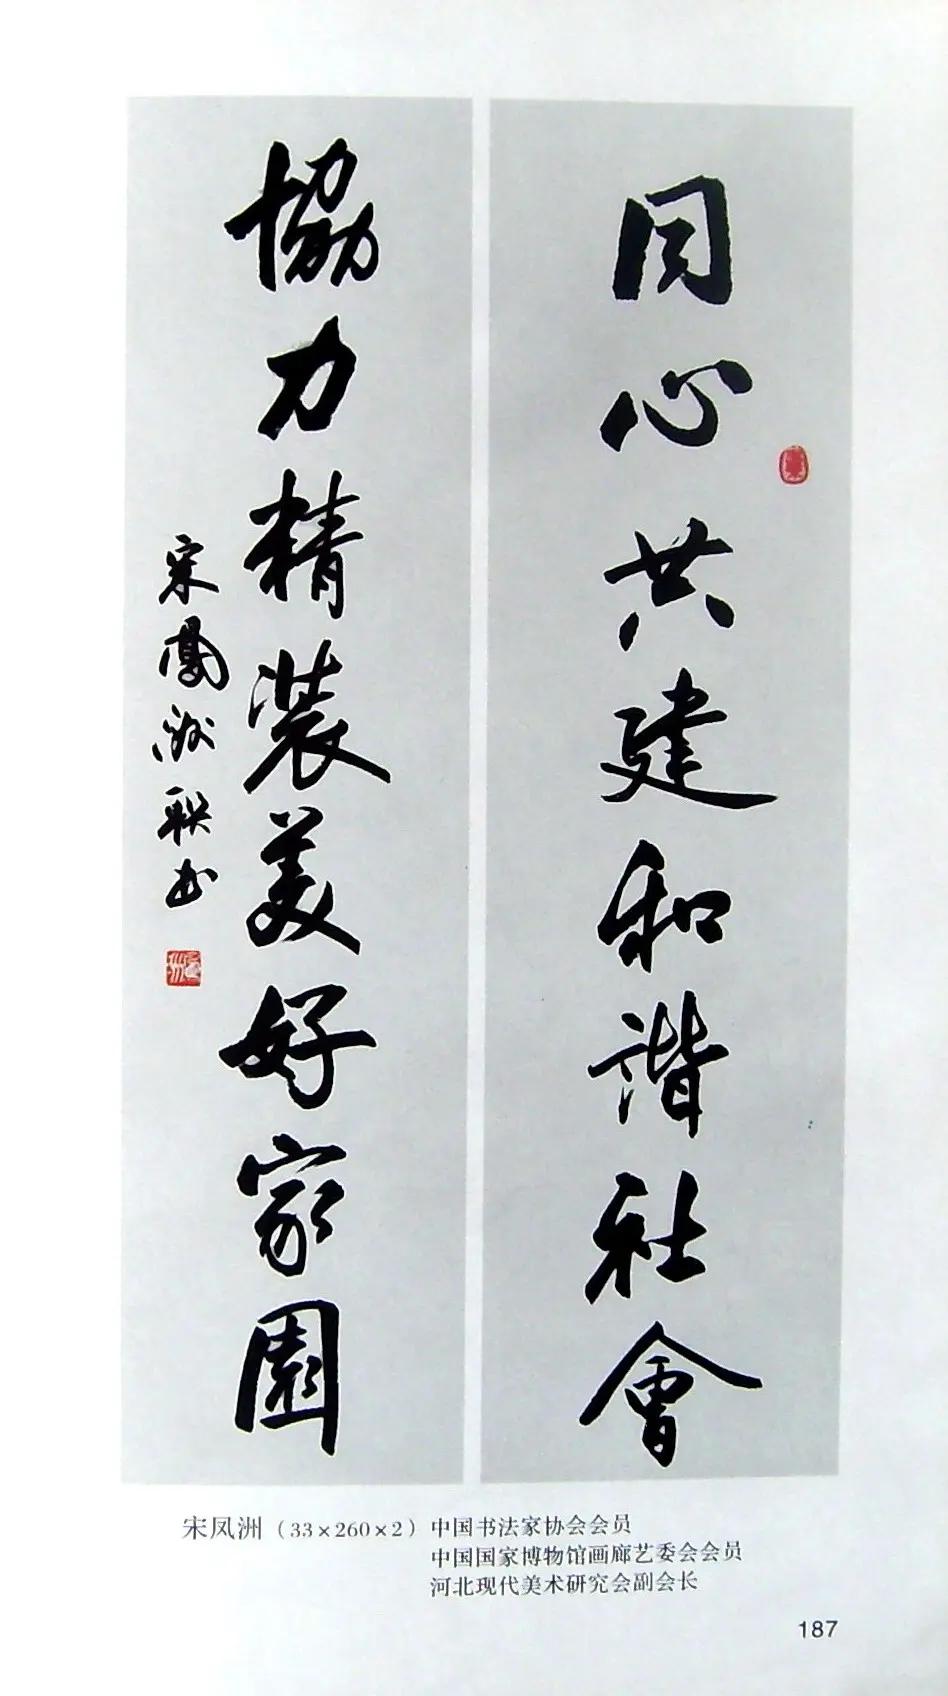 同心共建和谐社會
協力精装美好家園
宋鳳洲联书
宋凤洲（33×260×2）中国书法家协会会员
中国国家博物馆画廊艺委会会员
河北现代美术研究会副会长
187